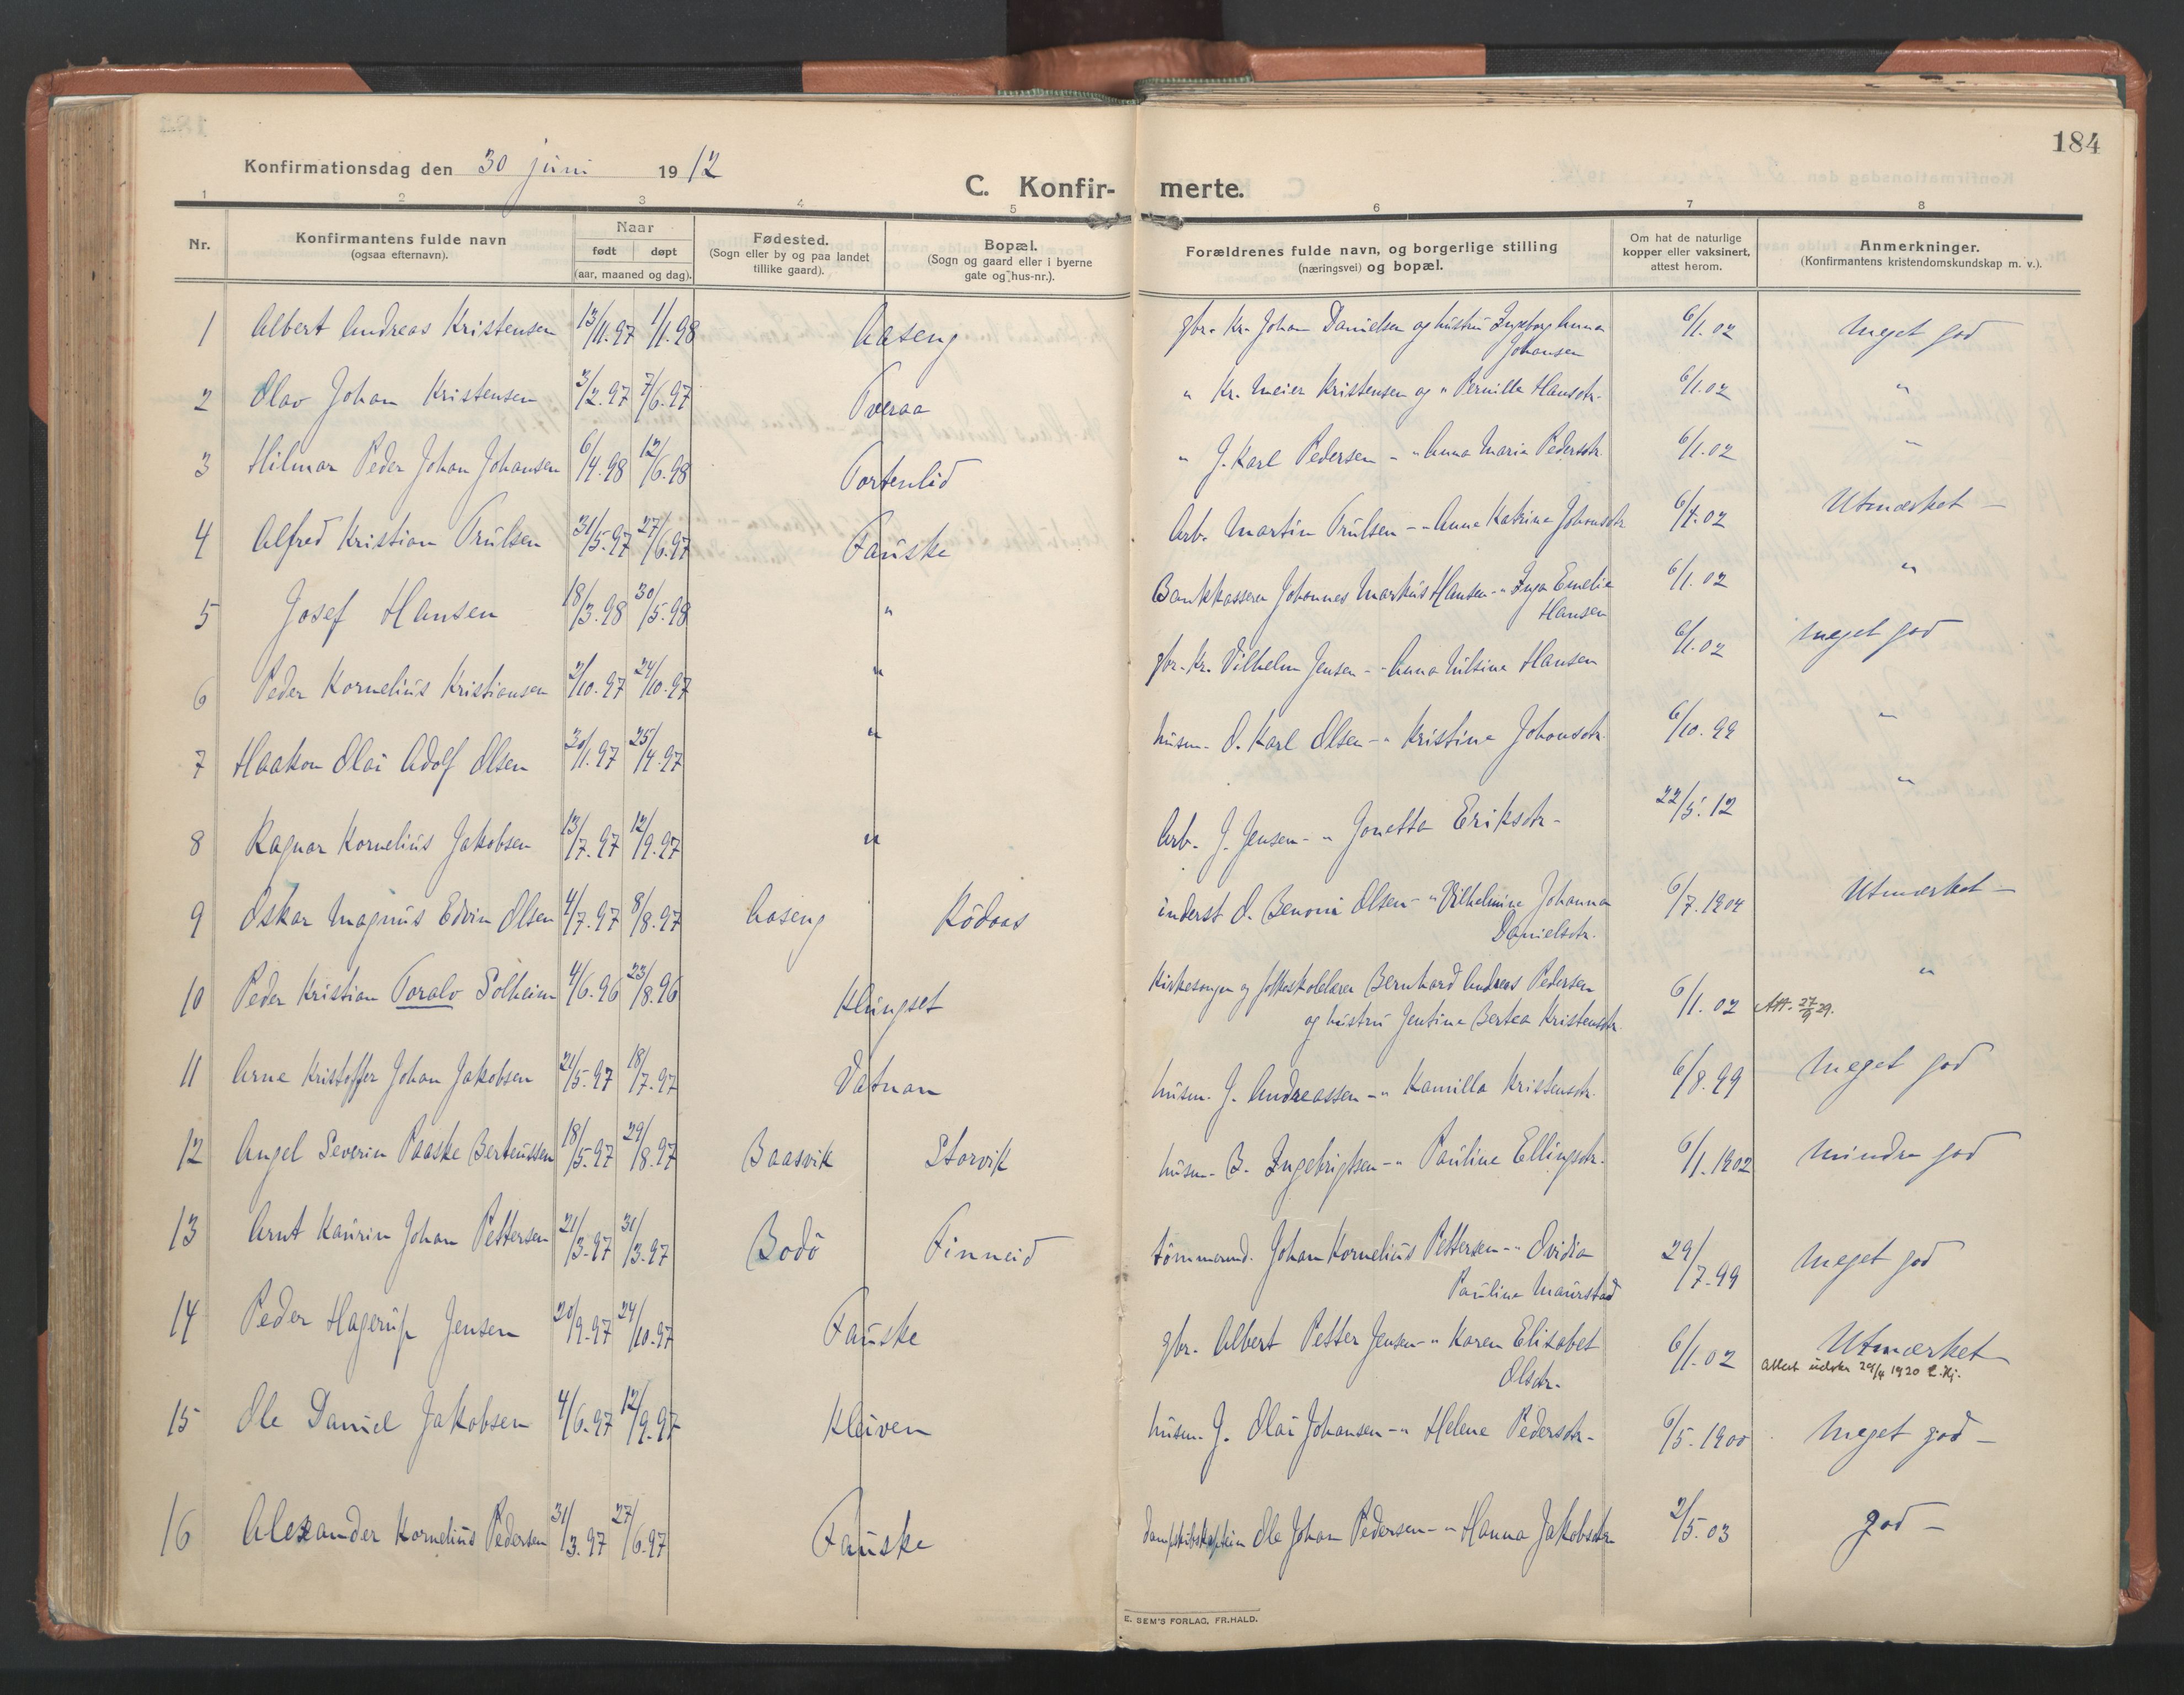 184
Konfirmationsdag den 30 juni 1912
C. Konfir- merte.
1 2 3 4 5 6 7 8
Nr.
Konfirmantens fulde navn
(ogsaa efternavn).
Naar
født døpt
(aar, maaned og dag).
Fødested.
(Sogn eller by og paa landet
tillike gaard).
Bopæl.
(Sogn og gaard eller i byerne
gate og hus-nr.).
Forældrenes fulde navn, og borgerlige stilling
(næringsvei) og bopæl.
Om hat de naturlige
kopper eller vaksinert,
attest herom.
Anmerkninger.
(Konfirmantens kristendomskundskap m. v.).
1 Albert Andreas Kristensen 13/11.97 1/1.98 Aaseng gbr. Kr. Johan Danielsen og hustru Ingeborg Anna 6/1.02 Meget god
Johansen
2 Olav Johan Kristensen 3/2.97 7/6.97 Tveraa " Kr. Meier Kristensen og " Pernille Hansdtr. 6/1.02 "
3 Hilmar Peder Johan Johansen 6/4.98 12/6.98 Tortenlid " J. Karl Pedersen - " Anna Maria Pedersdtr. 6/1.02 "
4 Alfred Kristian Trulsen 31/5.97 27/6.97 Fauske Arb. Martin Trulsen - - Anna Katrine Johansdtr 6/4.02 Utmærket -
5 Josef Hansen 18/3.98 30/5.98 " Bankkasserer Johannes Markus Hansen - " Inga Emelie 6/1.02 "
Hansen
6 Peder Kornelius Kristiansen 2/10.97 24/10.97 " gbr. Kr. Vilhelm Jensen - - Anna Nilsine Hansen 6/1.02 Meget god
7 Haakon Olai Adolf Olsen 30/1.97 25/4.97 " husm. O. Karl Olsen - " Kristine Johansdtr. 6/10.99 "
8 Ragnar Kornelius Jakobsen 13/7.97 12/9.97 " Arb. J. Jensen - " Jonetta Eriksdtr. 22/5.12 "
9 Oskar Magnus Edvin Olsen 4/7.97 8/8.97 Aaseng Rödaas inderst O. Benoni Olsen - " Vilhelmine Johanna 6/7.1904 Utmærket -
Danielsdtr.
10 Peder Kristian Toralv Solheim 4/6.96 23/8.96 Klungset Kirkesanger og folkeskolelærer Bernhard Andreas Pedersen "
og hustru Jentine Bertea Kristensdtr. 6/1.02 Att. 27/9 29.
11 Arne Kristoffer Johan Jakobsen 21/5.97 18/7.97 Vatnan husm. J. Andreassen - " Kamilla Kristensdtr. 6/8.99 Meget god
12 Angel Severin Paaske Berteussen 18/5.97 29/8.97 Baasvik Storvik husm. B. Ingebrigtsen - " Pauline Ellingsdtr. 6/1.1902 Mindre god
13 Arnt Kaurin Johan Pettersen 21/3.97 31/3.97 Bodö Finneid tömmermd. Johan Kornelius Pettersen - " Ovidia 29/7.99 Meget god
Pauline Maurstad
14 Peder Hagerup Jensen 20/9.97 24/10.97 Fauske gbr. Albert Petter Jensen - " Karen Elisabet 6/1.02 Utmærket
Olsdtr. Attest udst. 29/4 1920
15 Ole Daniel Jakobsen 4/6.97 12/9.97 Kleiven husm. J. Olai Johansen - " Helene Pedersdtr. 6/5.1900 Meget god -
16 Alexander Kornelius Pedersen 31/3.97 27/6.97 Fauske Dampskibskaptein Ole Johan Pedersen - " Hanna Jakobsdtr 2/5.03 god -
E. SEM'S FORLAG, FR.HALD.